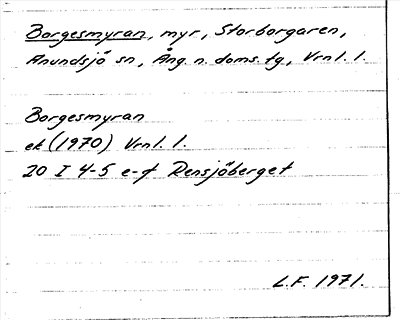 Borgesmyran, myr, Storborgaren,
Anundsjö sn, Ång. n. doms. tg., Vrnl. l.
Borgesmyran
ek (1970) Vrnl. l.
20 I 4-5 e-f Rensjöberget
L.F. 1971.